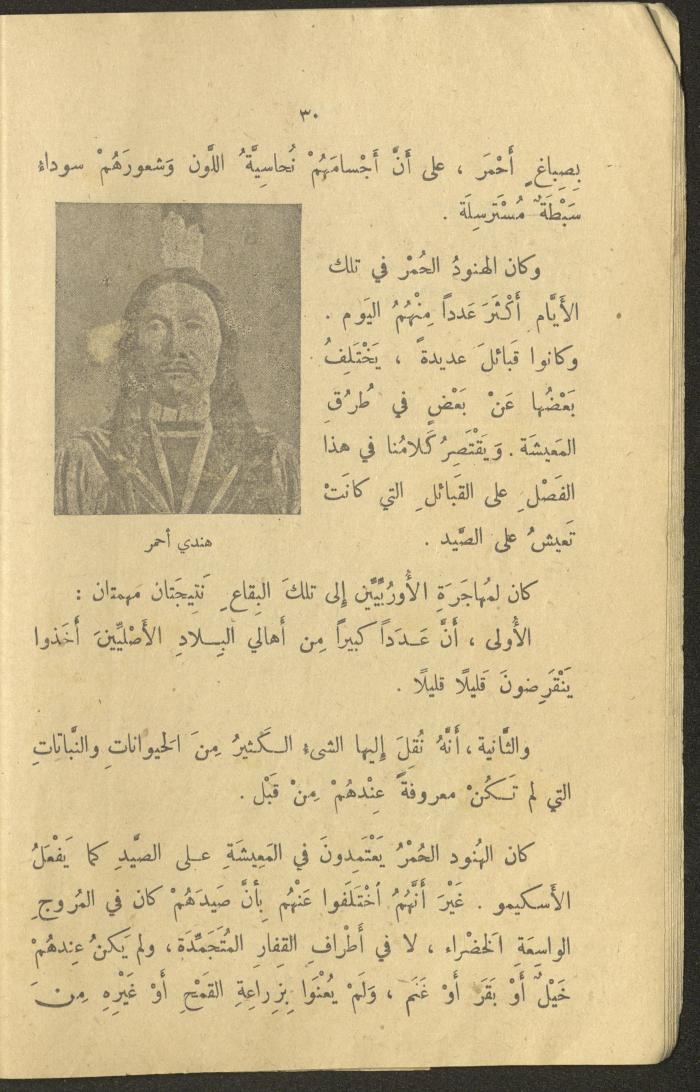 ٣٠
بِصِباغٍ أَحْمَرَ ، على أَنَّ أَجْسامَهُمْ نُحاسِيَّةُ اللَّون وَشعورَهُمْ سوداءُ
سَبْطَةٌ مُسْتَرسِلَة .
وكان الهنودُ الحُمْرُ في تلك
الأَيَّام أَكْثَرَ عَدداً مِنْهُمُ اليَوم .
وكانوا قَبائلَ عديدةً ، يَخْتَلِفُ
بَعْضُها عَنْ بَعْضٍ في طُرُقِ
المَعيشَة . وَيَقْتَصِرُ كَلامُنا في هذا
الفَصْلِ على القَبائلِ التي كانَتْ
تَعيشُ على الصَّيد .
هندي أحمر
كان لمُهاجَرَةِ الأُورُبِّيِّين إلى تلكَ البِقاعِ نَتِيجَتان مهمتان :
الأُولى ، أَنَّ عَـدَداً كبيراً مِن أَهالي البِـلادِ الأَصْلِيِّينَ أَخَذوا
يَنْقَرِضونَ قَليلًا قليلًا .
والثَّانية ، أَنَّهُ نُقِلَ إليها الشىءُ الـكَثيرُ مِنَ الحَيواناتِ والنَّباتاتِ
التي لم تَـكُنْ معروفةً عِنْدهُمْ مِنْ قَبْل .
كان الهُنود الحُمْرُ يَعْتَمِدونَ في المَعِيشَةِ عـلى الصَّيدِ كما يَفْعَلُ
الأَسكيمو . غَيْرَ أَنَّهُمُ اْختَلَفوا عَنْهُم بِأَنَّ صَيدَهُمْ كان في المُروجِ
الواسِعَةِ الخَضْراء ، لا في أَطْرافِ القِفارِ المُتَجَمِّدَة ، ولم يَكنْ عِندهُمْ
خَيْلٌ أَوْ بَقَر أَوْ غَنَم ، وَلَمْ يُعْنَوا بِزِراعةِ القَمْحِ أَوْ غَيْرِهِ مِنَ